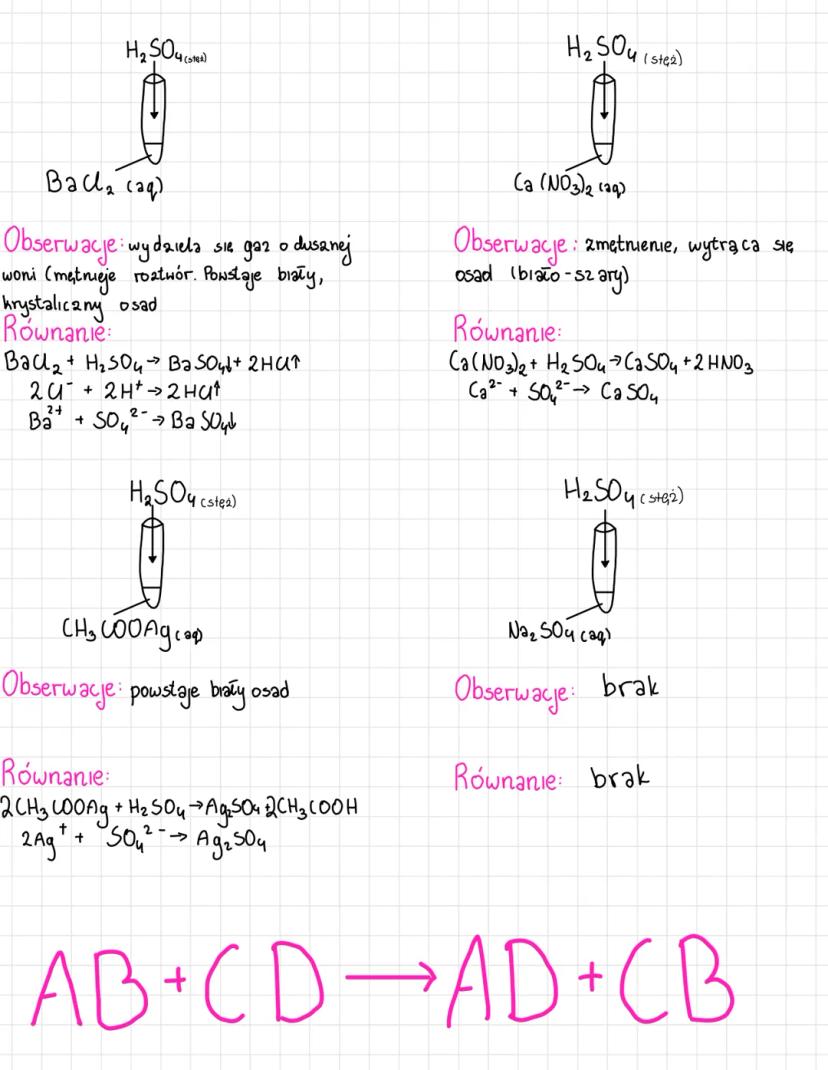 H₂SO₄(stęż)
BaCl₂ (aq)
Obserwacje: wydziela się gaz o dusznej
woni (mętnieje roztwór. Powstaje biały,
krystaliczny osad
Równanie:
BaCl₂ + H₂SO₄ → BaSO₄↓ + 2HCl↑
2Cl⁻ + 2H⁺ → 2HCl↑
Ba²⁺ + SO₄²⁻ → BaSO₄↓
H₂SO₄ (stęż)
Ca(NO₃)₂ (aq)
Obserwacje: zmętnienie, wytrąca się
osad (biało-szary)
Równanie:
Ca(NO₃)₂ + H₂SO₄ → CaSO₄ + 2HNO₃
Ca²⁻ + SO₄²⁻ → CaSO₄
H₂SO₄ (stęż)
CH₃COOAg (aq)
Obserwacje: powstaje biały osad
Równanie:
2CH₃COOAg + H₂SO₄ → Ag₂SO₄ 2CH₃COOH
2Ag⁺ + SO₄²⁻ → Ag₂SO₄
H₂SO₄ (stęż)
Na₂SO₄ (aq)
Obserwacje: brak
Równanie: brak
AB + CD → AD + CB